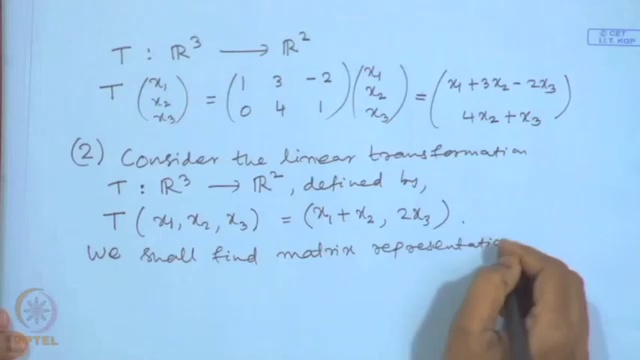 © CET
I.I.T. KGP
T : ℝ³ ⟶ ℝ²
T (x₁ x₂ x₃) = (1 3 -2 0 4 1) (x₁ x₂ x₃) = (x₁ + 3x₂ - 2x₃ 4x₂ + x₃)
(2) Consider the linear transformation
T : ℝ³ ⟶ ℝ², defined by,
T (x₁, x₂, x₃) = (x₁ + x₂, 2x₃).
We shall find matrix representatio
NPTEL